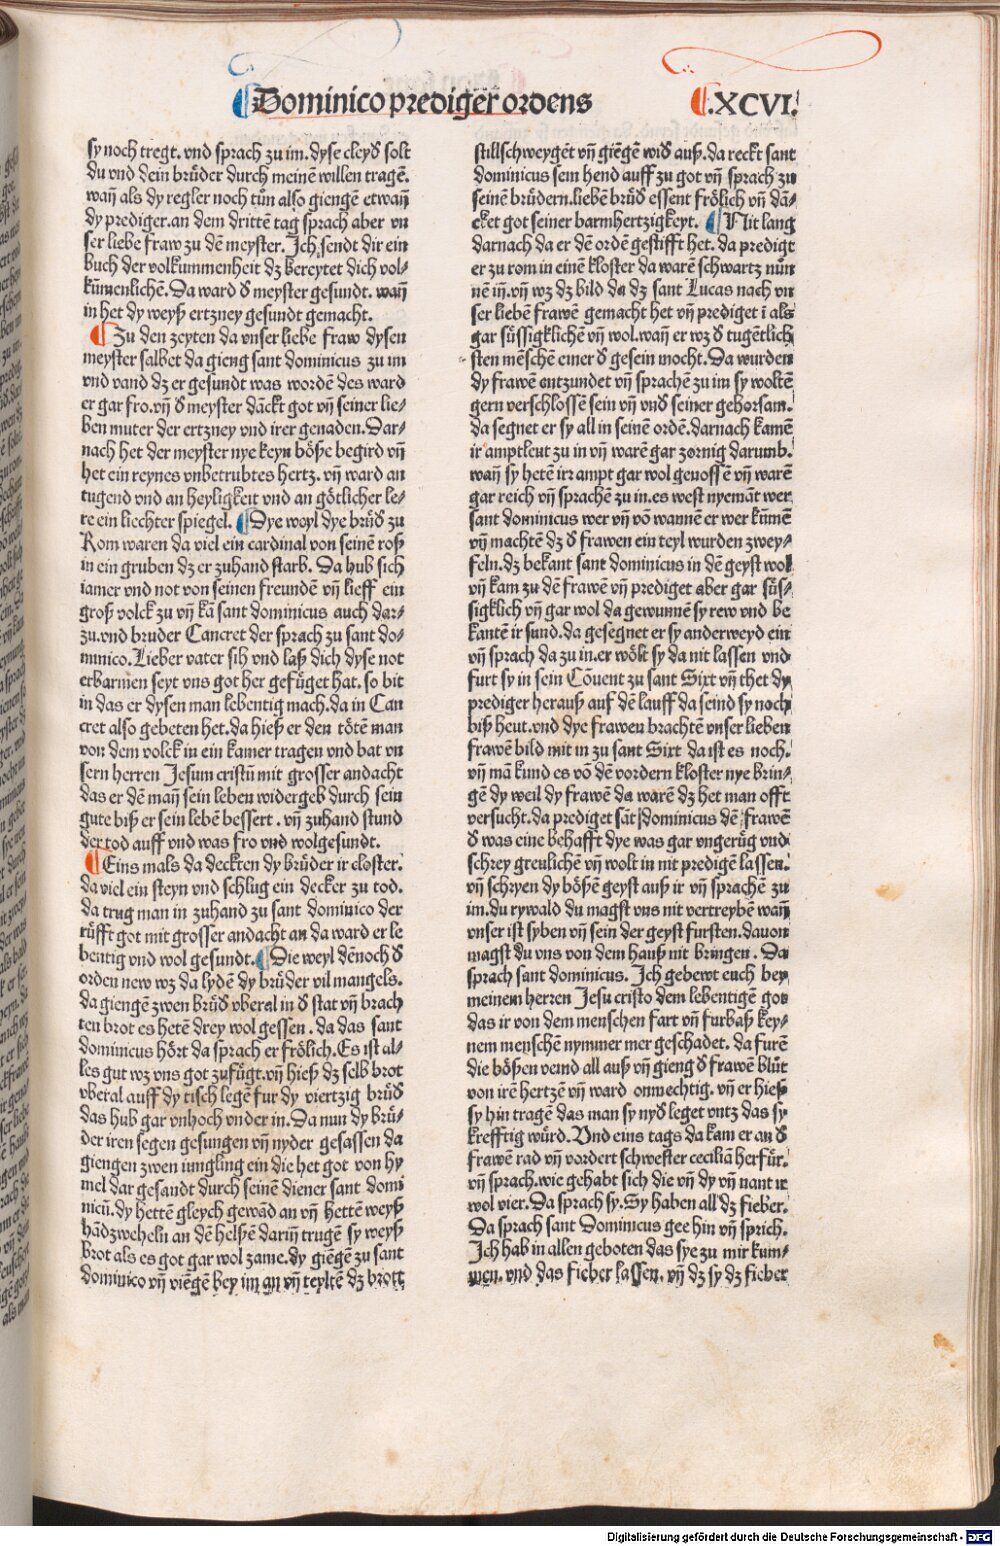 Dominico prediger ordens
.XCVI.
sy noch tregt. vnd sprach zu im. dyse cleyd solt
du vnd dein brůder durch meinē willen tragē.
wañ als dy regler noch tůn also giengē etwañ
dy prediger. an dem drittē tag sprach aber vn
ser liebe fraw zu dē meyster. Ich sendt dir ein
buch der volkummenheit dz bereytet dich vol⸗
kůmenlichē. Da ward d̕ meyster gesundt. wañ
in het dy weyß ertzney gesundt gemacht.
Zu den zeyten da vnser liebe fraw dysen
meyster salbet da gieng sant dominicus zu im
vnd vand dz er gesundt was wordē des ward
er gar fro. vñ d̕ meyster dāckt got vñ seiner lie⸗
ben muter der ertzney vnd irer genaden. Dar⸗
nach het der meyster nye keyn bőße begird vñ
het ein reynes vnbetrubtes hertz. vñ ward an
tugend vnd an heyligkeit vnd an gőtlicher le⸗
re ein liechter spiegel. Dye weyl dye brůd̕ zu
Rom waren da viel ein cardinal von seinē roß
in ein gruben dz er zuhand starb. Da hub sich
iamer vnd not von seinen freundē vñ lieff ein
groß volck zu vñ kā sant dominicus auch dar⸗
zu. vnd bruder Cancret der sprach zu sant do⸗
minico. Lieber vater sih vnd laß dich dyse not
erbarmen seyt vns got her gefůget hat. so bit
in das er dysen man lebentig mach. da in Can
cret also gebeten het. da hieß er den tőtē man
von dem volck in ein kamer tragen vnd bat vn
sern herren Jesum cristū mit grosser andacht
das er dē mañ sein leben widergeb durch sein
gute biß er sein lebē bessert. vñ zuhand stund
der tod auff vnd was fro vnd wolgesundt.
Eins mals da deckten dy brůder ir closter.
da viel ein steyn vnd schlug ein decker zu tod.
da trug man in zuhand zu sant dominico der
růfft got mit grosser andacht an da ward er le
bentig vnd wol gesundt. Die weyl dēnoch d̕
orden new wz da lydē dy brůder vil mangels.
da giengē zwen brůd̕ vberal in d̕ stat vñ brach
ten brot es hetē drey wol gessen. da das sant
dominicus hőrt da sprach er frőlich. Es ist al⸗
les gut wz vns got zufůgt. vñ hieß dz selb brot
vberal auff dy tisch legē fur dy viertzig brůd̕
das hub gar vnhoch vnder in. Da nun dy brů⸗
der iren segen gesungen vñ nyder gesassen da
giengen zwen iungling ein die het got von hy
mel dar gesandt durch seinē diener sant domi
nicū. dy hettē gleych gewād an vñ hettē weyß
hādzweheln an dē helßē dariñ trugē sy weyß
brot als es got gar wol zame. dy giēgē zu sant
dominico vñ viēgē bey im an vñ teyltē dz brott
stillschweygēt vñ giēgē wid̕ auß. da reckt sant
dominicus sein hend auff zu got vñ sprach zu
seinē brůdern. liebē brůd̕ essent frőlich vñ dā⸗
cket got seiner barmhertzigkeyt. Nit lang
darnach da er dē ordē gestifft het. da predigt
er zu rom in einē kloster da warē schwartz nůn
nē iñ. vñ wz dz bild da dz sant Lucas nach vn
ser liebē frawē gemacht het vñ prediget ī als
gar sůssigklichē vñ wol. wañ er wz d̕ tugētlich
sten mēschē einer d̕ gesein mocht. Da wurden
dy frawē entzundet vñ sprachē zu im sy woltē
gern verschlossē sein vñ vnd̕ seiner gehorsam.
da segnet er sy all in seinē ordē. darnach kamē
ir amptleut zu in vñ warē gar zornig darumb.
wañ sy hetē irr ampt gar wol genossē vñ warē
gar reich vñ sprachē zu in. es west nyemāt wer
sant dominicus wer vñ vō wannē er wer kůmē
vñ machtē dz d̕ frawen ein teyl wurden zwey⸗
feln. dz bekant sant dominicus in dē geyst wol
vñ kam zu dē frawē vñ prediget aber gar sůs⸗
sigklich vñ gar wol da gewunnē sy rew vnd be
kantē ir sund. da gesegnet er sy anderweyd ein
vñ sprach da zu in. er wőlt sy da nit lassen vnd
furt sy in sein Cōuent zu sant Sixt vñ thet dy
prediger herauß auf dē lauff da seind sy noch
biß heut. vnd dye frawen brachtē vnser lieben
frawē bild mit in zu sant Sixt da ist es noch.
vñ mā kund es vō dē vordern kloster nye brin⸗
gē dy weil dy frawē da warē dz het man offt
versucht. da prediget sāt dominicus dē frawē
d̕ was eine behafft dye was gar vngerůg vnd
schrey greulichē vñ wolt in nit predigē lassen.
vñ schryen dy bőßē geyst auß ir vñ sprachē zu
im. du rywald du magst vns nit vertreybē wañ
vnser ist syben vñ sein der geyst fursten. dauon
magst du vns von dem hauß nit bringen. Da
sprach sant dominicus. Ich gebewt euch bey
meinem herren Jesu cristo dem lebentigē got
das ir von dem menschen fart vñ furbaß key⸗
nem menschē nymmer mer geschadet. da furē
die bőßen veind all auß vñ gieng d̕ frawē blůt
von irē hertzē vñ ward onmechtig. vñ er hieß
sy hin tragē das man sy nyd̕ leget vntz das sy
krefftig wůrd. Vnd eins tags da kam er an d̕
frawē rad vñ vordert schwester ceciliā herfůr.
vñ sprach. wie gehabt sich die vñ dy vñ nant ir
wol vier. Da sprach sy. Sy haben all dz fieber.
Da sprach sant Dominicus gee hin vñ sprich.
Ich hab in allen geboten das sye zu mir kum⸗
men. vnd das fieber lassen. vñ dz sy dz fieber
Digitalisierung gefördert durch die Deutsche Forschungsgemeinschaft - DFG